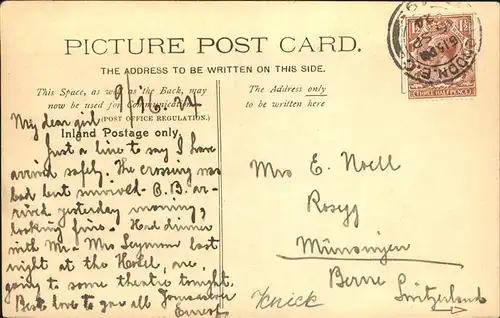 PICTURE POST CARD.
THE ADDRESS TO BE WRITTEN ON THIS SIDE.
This Space, as well as the Back, may
now be used for Communication.
(POST OFFICE REGULATION.)
Inland Postage only
The Address only
to be written here
My dear girl
Just a line to say I have
arrived safely. The crossing was
bad but survived - B.B. ar-
rived yesterday morning,
looking fine. Had dinner
with Mr. Mrs Seymour last
night at the Hotel, are
going to some theatre tonight.
Best love to you all
Ernest
Mrs E. Noell
Rosyg
Münsingen
Berne
Switzerland
Knick
THREE HALFPENCE
LONDON